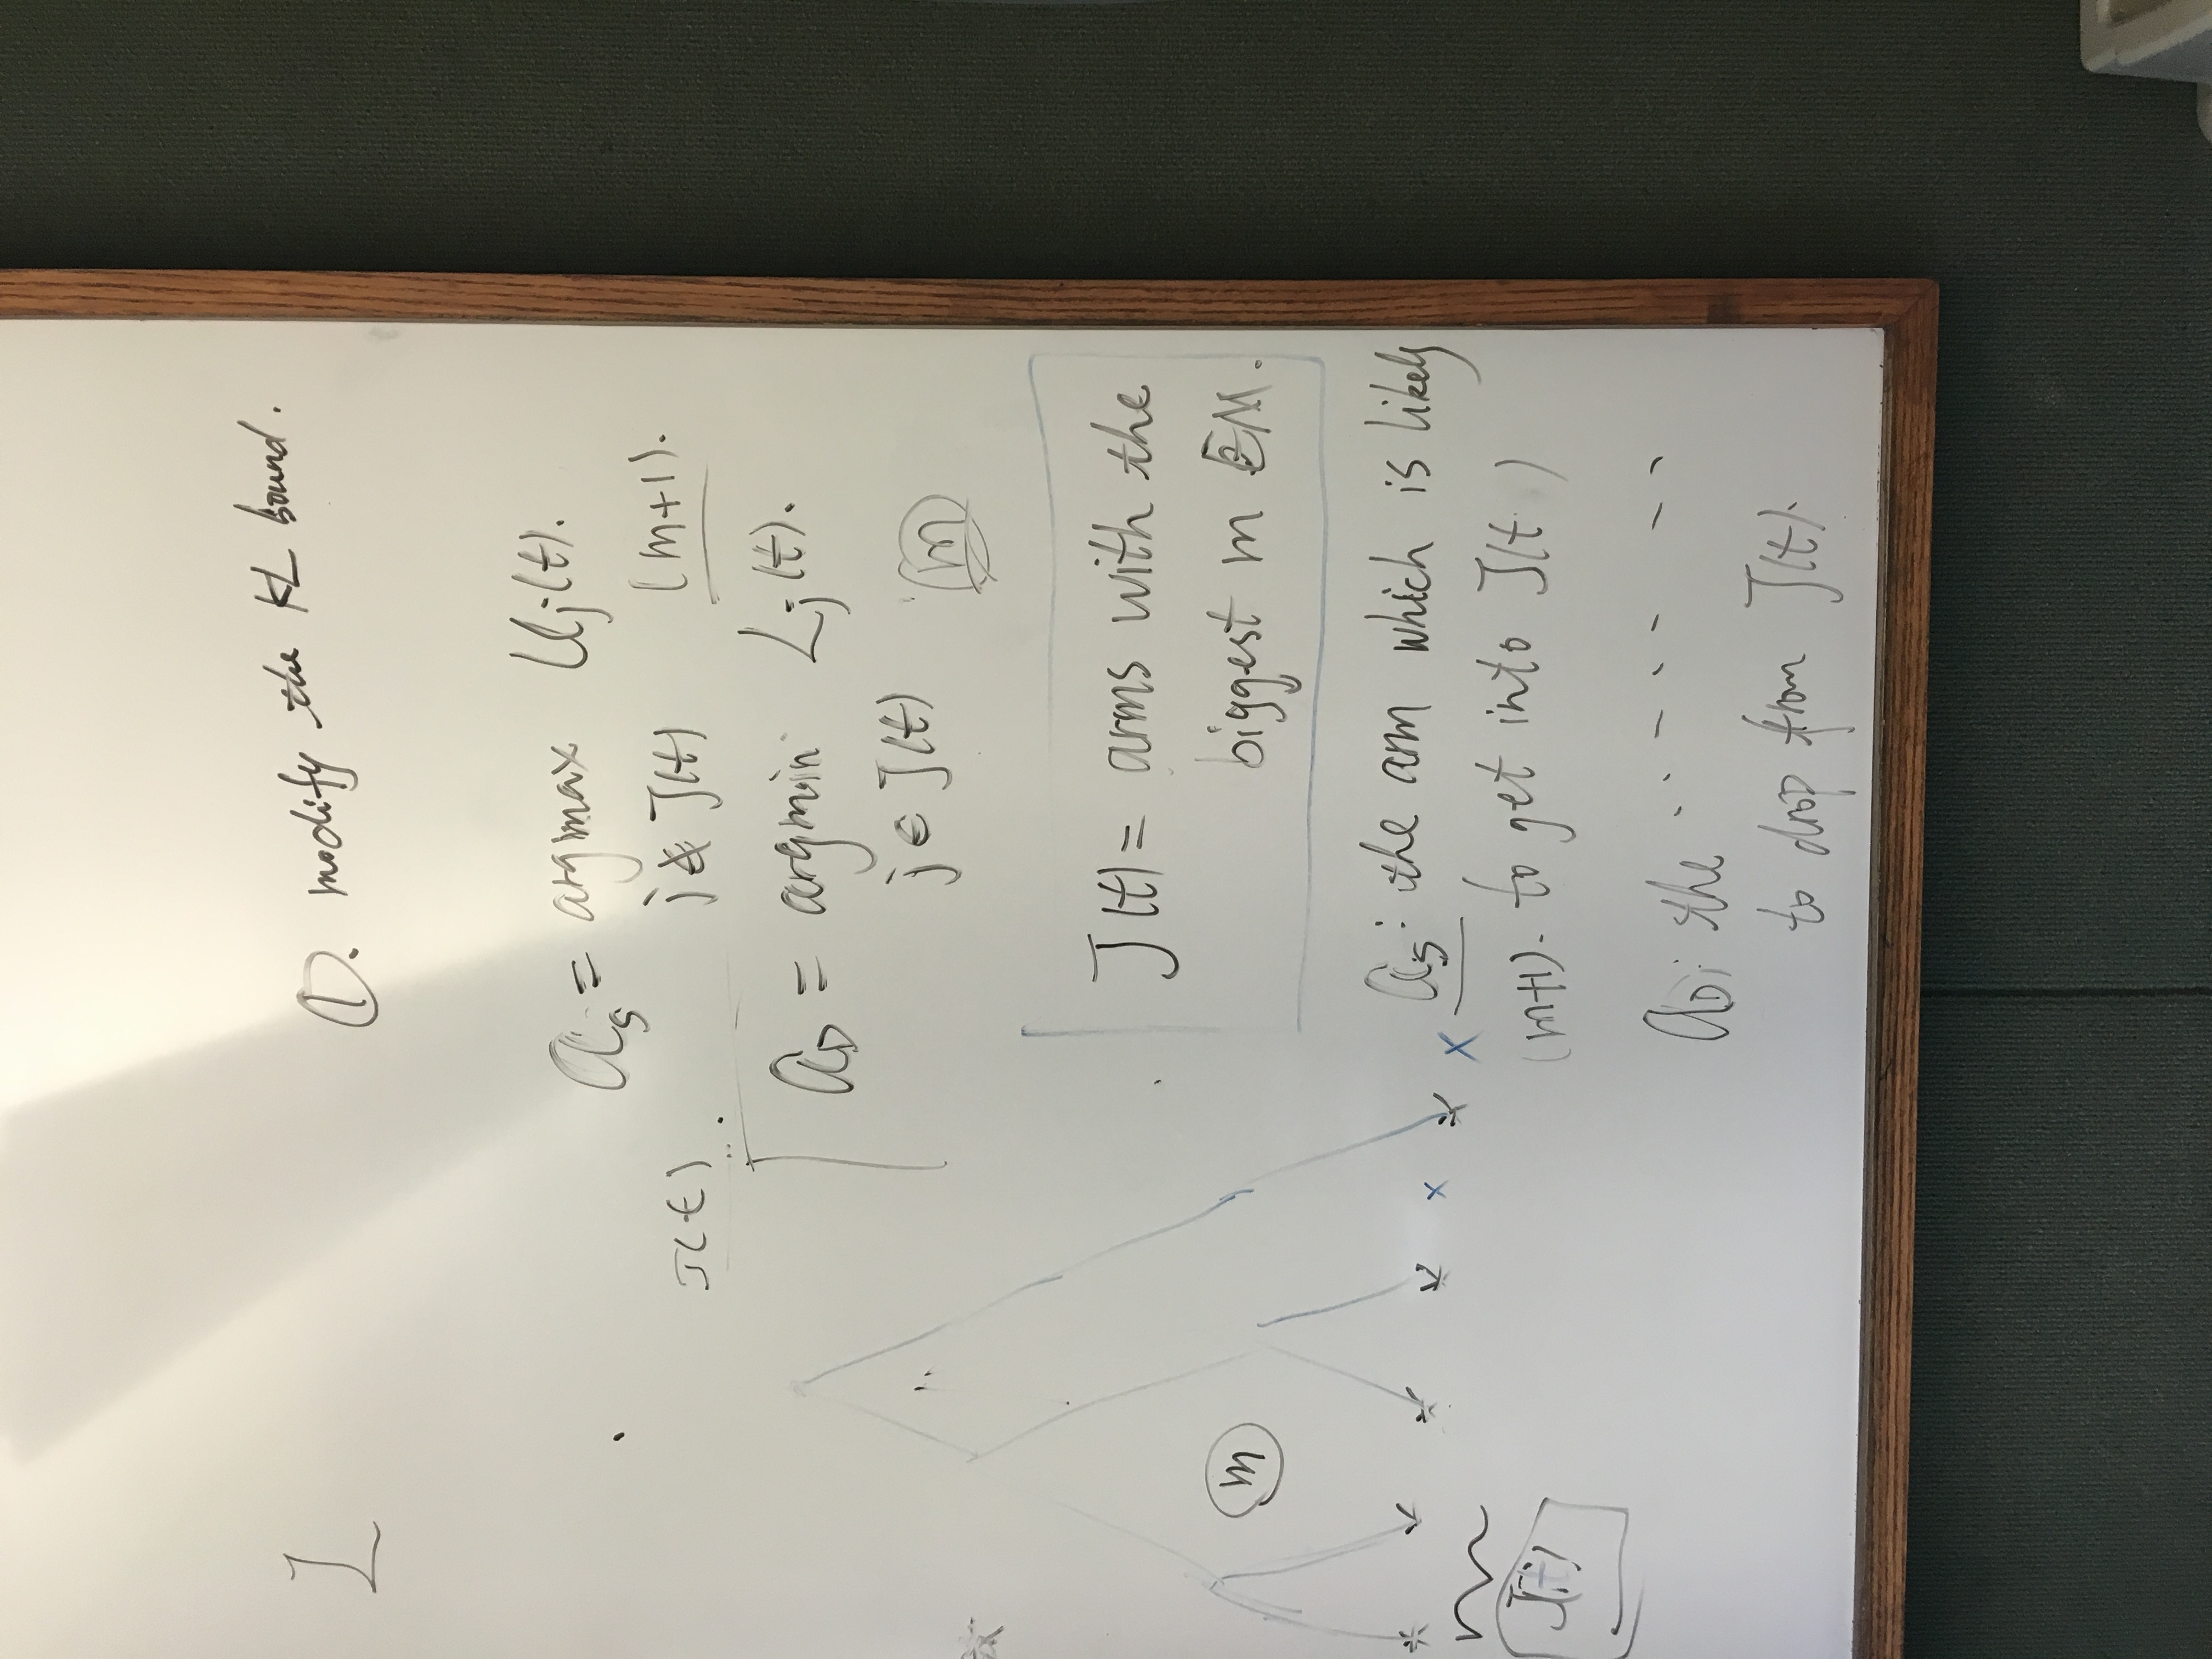 ①. modify the KL bound.
a_S = argmax U_j(t).
j ∉ J(t) (m+1).
J(t).
a_D = argmin L_j(t).
j ∈ J(t) m
J(t) = arms with the
biggest m EM.
m
a_S: the arm which is likely
(m+1). to get into J(t )
J(t)
a_D: the ..-.- --
to drop from J(t).